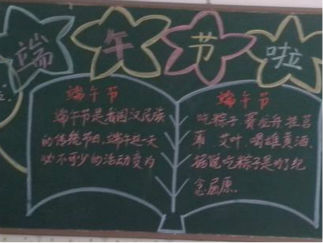 端午节啦
端午节
端午节是我国汉民族
的传统节日,端午这一天
必不可少的活动变为
端午节
吃粽子 赛龙舟 挂菖
蒲、艾叶、喝雄黄酒.
据说吃粽子是为纪
念屈原.